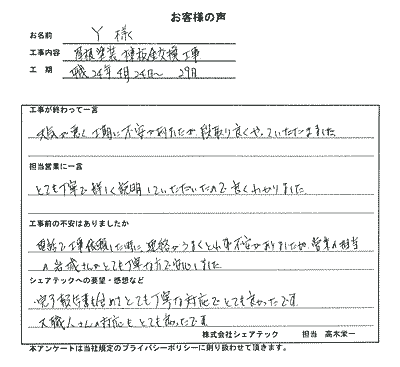 お客様の声
お名前 Y 様
工事内容 屋根塗装 棟板金交換工事
工 期 平成24年4月26日～ 29日
工事が終わって一言
天気が悪く工期に不安がありましたが、段取り良くやっていただきました
担当営業に一言
とても丁寧で詳しく説明していただいたので良くわかりました
工事前の不安はありましたか
電話で工事依頼した時に連絡がうまくとれず不安がありましたが営業の担当
の岩城さんがとても丁寧な方で安心しました
シェアテックへの要望・感想など
・完了報告書も含めてとても丁寧な対応でとても良かったです
又職人さんの対応もとても良かったです
株式会社シェアテック 担当 高木栄一
本アンケートは当社規定のプライバシーポリシーに則り扱わせて頂きます。